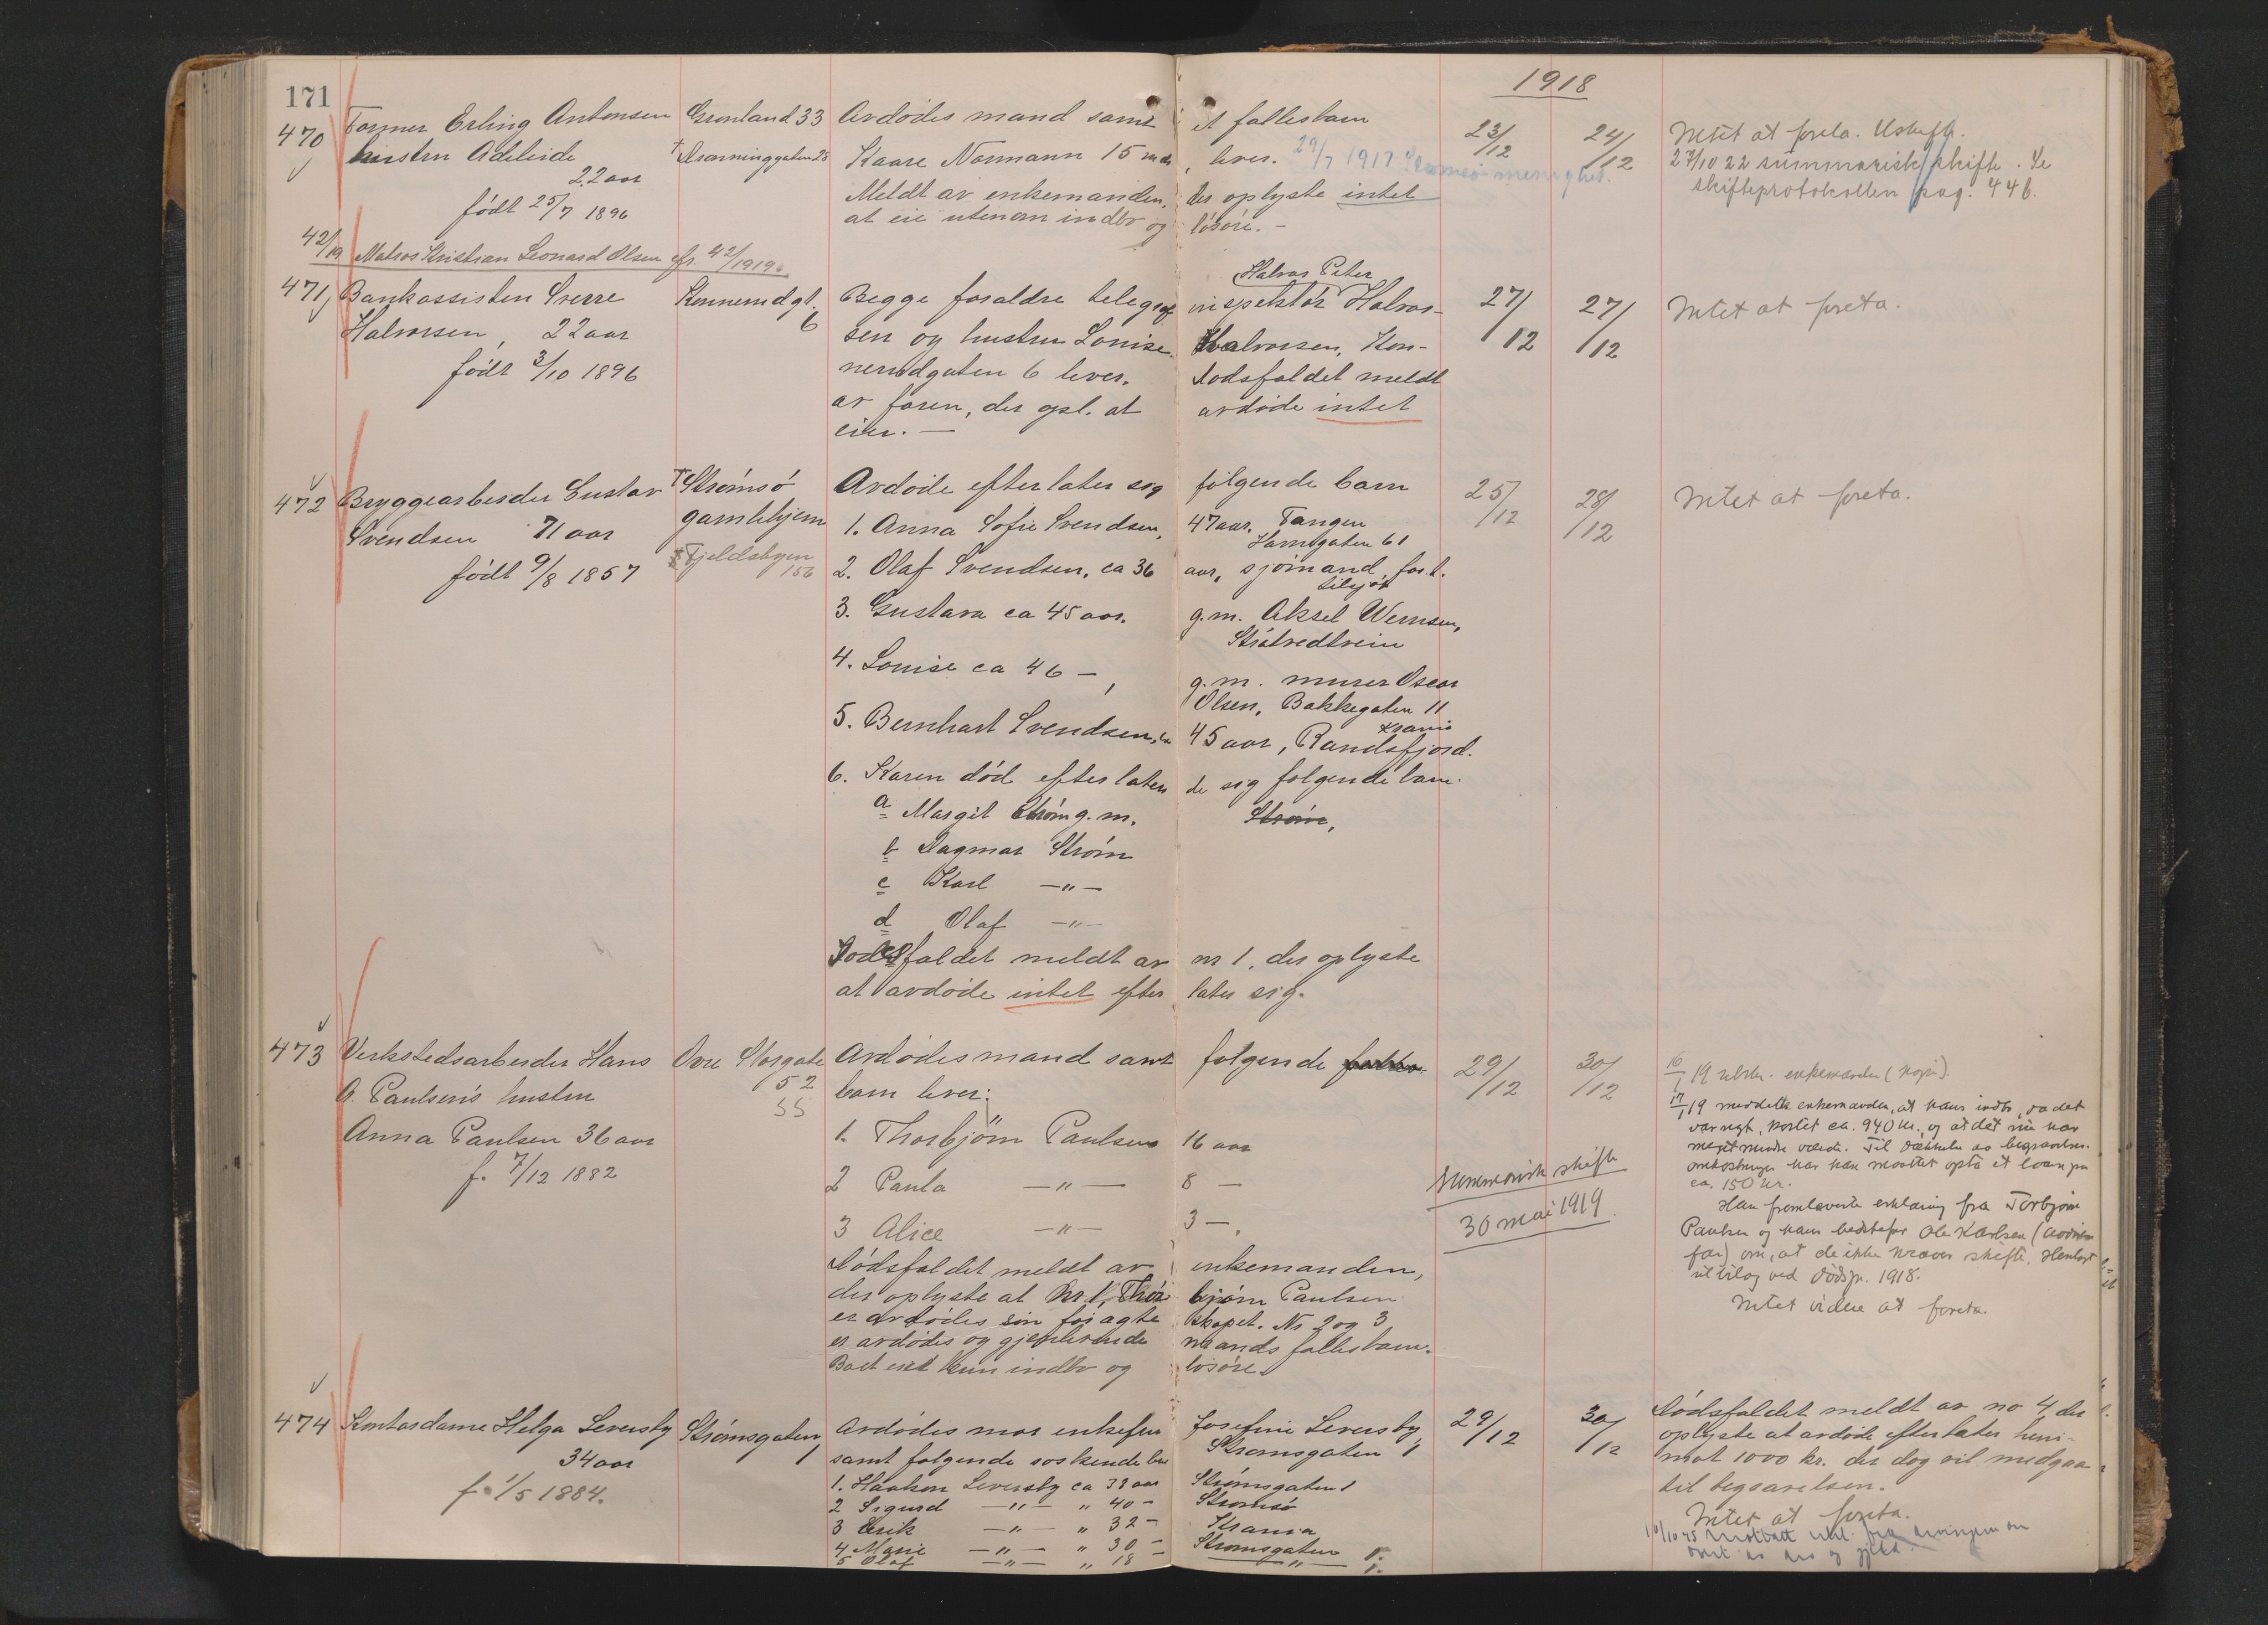 171
1918
470 Former Erling Antonsen Grønland 33 Avdødes mand samt et fællesbarn 23/12 24/12 Intet at foreta. Uskifte.
hustru Adeleide † Dronninggaten 28 Kaare Normann 15 mdr, lever. 29/7 1917 Strømsø menighet. 27/10 22 summarisk skifte. Se
22 aar Meldt av enkemanden, der oplyste intet skifteprotokollen pag. 446.
født 25/7 1896 at eie utenom indbo og løsøre. –
42/19 Matros Kristian Leonard Olsen cfr. 42/1919.
Halvor Peter
471 Bankassistent Sverre Konnerudgt. Begge forældre telegraf inspektør Halvor- 27/12 27/12 Intet at foreta.
Halvorsen, 22 aar 6 sen og hustru Louise Halvorsen, Kon-
født 3/10 1896 nerudgaten 6 lever. Dødsfaldet meldt
av faren, der opl. at avdøde intet
eier. —
472 Bryggearbeider Gustav † Strømsø Avdøde efterlater sig følgende barn 25/12 28/12 Intet at foreta.
Svendsen 71 aar gamlehjem 1. Anna Sofie Svendsen, 47 aar. Tangen
Havnegaten 61
født 9/8 1857 Fjeldsbyen 156 2. Olaf Svendsen, ca 36 aar, sjømand, for t.
tilsjøs
3. Gustava ca 45 aar. g.m. Aksel Wernsen,
4. Louise ca 46 –, g.m. murer Oscar
Olsen, Bakkegaten 11
Krania
5. Bernhart Svendsen, ca 45 aar, Randsfjord.
6. Karen død efterlaten de sig følgende barn.
a Margit Strøm g.m. Strøm,
b Dagmar Strøm
c Karl —"—
d Olaf —"—
Dødsfaldet meldt av nr 1, der oplyste
at avdøde intet efter later sig.
473 Verkstedsarbeider Hans Øvre Storgate Avdødes mand samt følgende 29/12 30/12 16/1 19 enkemanden (kopi).
A. Paulsen's hustru 52 barn lever: 17/1 19 meddelte enkemanden, at hans indbo, da det
55
Anna Paulsen 36 aar 1. Thorbjørn Paulsen 16 aar var nyt, kostet ca. 940 kr., og at det nu har
meget mindre værdi. Til dækkelse av begravelses-
f. 7/12 1882 2 Paula —"— 8 — Summarisk skifte omkostninger har han maattet opta et laan paa
ca. 150 kr.
3 Alice —"— 3 –. 30 mai 1919. Han fremlæverte erklæring fra Torbjørn
Paulsen og hans bedstefar Ole Karlsen (avdødes
Dødsfaldet meldt av enkemanden, far) om, at de ikke kræver skifte. Henlagt
der oplyste at nr. 1, Thor bjørn Paulsen til bilag ved dødspr. 1918.
er avdødes søn før ægte skapet. Nr 2 og 3 Intet videre at foreta.
er avdødes og gjenlevende mands fællesbarn.
Boet eiet kun indbo og løsøre.
474 Kontordame Helga Seversby Strømsgaten Avdødes mor enkefru Josefine Seversby, 29/12 30/12 Dødsfaldet meldt av no 4, der
34 aar 1 samt følgende søskende lever Strømsgaten 1 oplyste at avdøde efterlater hen-
f. 1/5 1884. 1. Haakon Seversby ca 38 aar Strømsgaten 1 imot 1000 kr. der dog vil medgaa
2 Sigurd —"— " 40 – Strømsø til begravelsen.
3 Erik —"— " 32 – Krania Intet at foreta.
4 Marie —"— " 30 – Strømsgaten 1.
5 Olaf —"— " 18 —"— 1.
10/10 45 Mottatt fra